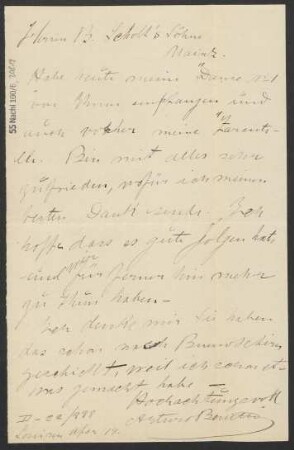 Herrn B. Schott's Söhne
Mainz.
Habe heute meine "Danse
von Ihnen empfangen und
auch vorher meine "Tarantel-
le. Bin mit alles sehr
zufrieden, wofür ich meinen
besten Dank sende. Ich
hoffe dass es gute folgen hat,
und wir für ferner hin mehr
zu thun haben -
Ich denke mir Sie haben
das schon nach
geschickt weil ich schon
gemacht habe -
Hochachtungsvoll
Arturo
55 Nachl 100/A,